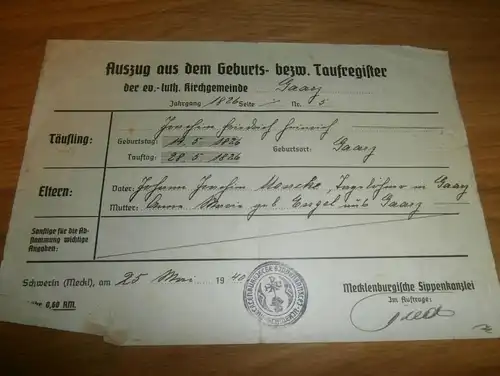 Auszug aus dem Geburts- bezw. Taufregister
der ev.-luth. Kirchgemeinde Gaarz
Jahrgang 1826 Seite / Nr. 5
Täufling:
Joachim Friedrich Heinrich
Geburtstag: 14.5.1826 Geburtsort: Gaarz
Tauftag: 28.5.1826
Eltern:
Vater: Johann Joachim Mencke, Tagelöhner in Gaarz
Mutter: Anna Maria geb. Engel aus Gaarz
Sonstige für die Ab-
stammung wichtige
Angaben:
Schwerin (Meckl), am 25 Mai 1940
Mecklenburgische Sippenkanzlei
Im Auftrage:
0,60 RM.